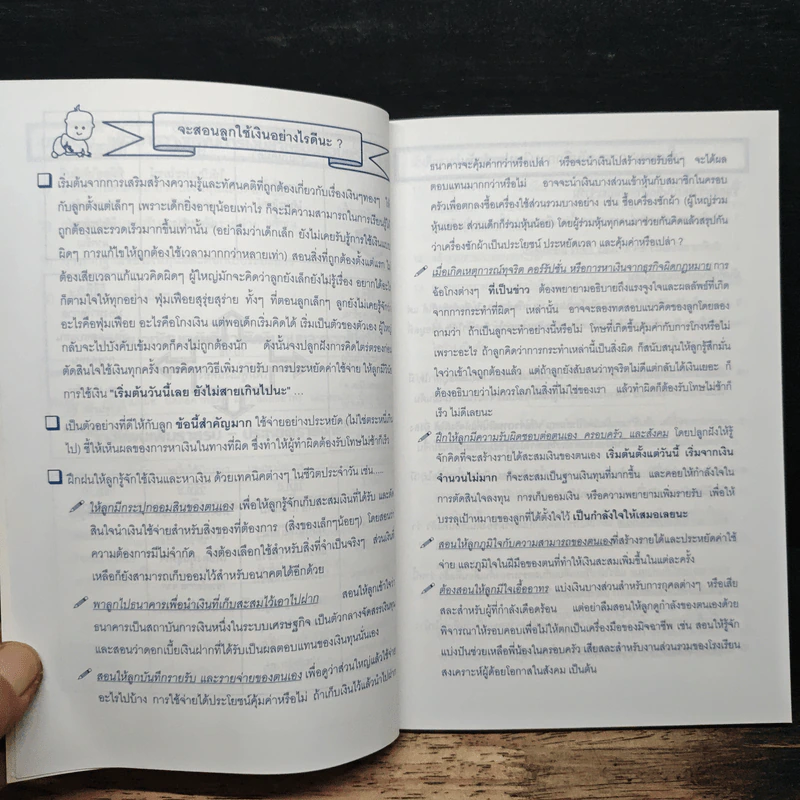 จะสอนลูกใช้เงินอย่างไรดีนะ ?
เริ่มต้นจากการเสริมสร้างความรู้และทัศนคติที่ถูกต้องเกี่ยวกับเรื่องเงินๆทองๆ
กับลูกตั้งแต่เล็กๆ เพราะเด็กยิ่งอายุน้อยเท่าไร ก็จะมีความสามารถในการเรียนรู้ได้
ถูกต้องและรวดเร็วมากขึ้นเท่านั้น (อย่าลืมว่าเด็กเล็ก ยังไม่เคยรับรู้การใช้เงินแบบ
ผิดๆ การแก้ไขให้ถูกต้องใช้เวลามากกว่าหลายเท่า) สอนสิ่งที่ถูกต้องตั้งแต่แรก
ต้องเสียเวลาแก้แนวคิดผิดๆ ผู้ใหญ่มักจะคิดว่าลูกยังเล็กยังไม่รู้เรื่อง อยากได้อะไร
ก็ตามใจให้ทุกอย่าง ฟุ่มเฟือยสุรุ่ยสุร่าย ทั้งๆ ที่ตอนลูกเล็กๆ ลูกยังไม่เคยรู้จัก
อะไรคือฟุ่มเฟือย อะไรคือโกงเงิน แต่พอเด็กเริ่มคิดได้ เริ่มเป็นตัวของตัวเอง ผู้ใหญ่
กลับจะไปบังคับเข้มงวดก็คงไม่ถูกต้องนัก ดังนั้นจงปลูกฝังการคิดไตร่ตรองก่อน
ตัดสินใจใช้เงินทุกครั้ง การคิดหาวิธีเพิ่มรายรับ การประหยัดค่าใช้จ่าย ให้ลูกมีวินัย
การใช้เงิน "เริ่มต้นวันนี้เลย ยังไม่สายเกินไปนะ" ...
เป็นตัวอย่างที่ดีให้กับลูก ข้อนี้สำคัญมาก ใช้จ่ายอย่างประหยัด (ไม่ใช่ตระหนี่เกิน
ไป) ชี้ให้เห็นผลของการหาเงินในทางที่ผิด ซึ่งทำให้ผู้ทำผิดต้องรับโทษไม่ช้าก็เร็ว
ฝึกฝนให้ลูกรู้จักใช้เงินและหาเงิน ด้วยเทคนิคต่างๆ ในชีวิตประจำวัน เช่น....
ให้ลูกมีกระปุกออมสินของตนเอง เพื่อให้ลูกรู้จักเก็บสะสมเงินที่ได้รับ และ
สินใจนำเงินใช้จ่ายสำหรับสิ่งของที่ต้องการ (สิ่งของเล็กๆน้อยๆ) โดยสอน
ความต้องการมีไม่จำกัด จึงต้องเลือกใช้สำหรับสิ่งที่จำเป็นจริงๆ ส่วนเงิน
เหลือก็ยังสามารถเก็บออมไว้สำหรับอนาคตได้อีกด้วย
พาลูกไปธนาคารเพื่อนำเงินที่เก็บสะสมไว้เอาไปฝาก สอนให้ลูกเข้าใจว่า
ธนาคารเป็นสถาบันการเงินหนึ่งในระบบเศรษฐกิจ เป็นตัวกลางจัดสรรเงินทุน
และสอนว่าดอกเบี้ยเงินฝากที่ได้รับเป็นผลตอบแทนของเงินทุนนั่นเอง
สอนให้ลูกบันทึกรายรับ และรายจ่ายของตนเอง เพื่อดูว่าส่วนใหญ่แล้วใช้จ่าย
อะไรไปบ้าง การใช้จ่ายได้ประโยชน์คุ้มค่าหรือไม่ ถ้าเก็บเงินไว้แล้วนำไปฝาก
ธนาคารจะคุ้มค่ากว่าหรือเปล่า หรือจะนำเงินไปสร้างรายรับอื่นๆ จะได้ผล
ตอบแทนมากกว่าหรือไม่ อาจจะนำเงินบางส่วนเข้าหุ้นกับสมาชิกในครอบ
ครัวเพื่อตกลงซื้อเครื่องใช้ส่วนรวมบางอย่าง เช่น ซื้อเครื่องซักผ้า (ผู้ใหญ่ร่วม
หุ้นเยอะ ส่วนเด็กก็ร่วมหุ้นน้อย) โดยผู้ร่วมหุ้นทุกคนมาช่วยกันคิดแล้วสรุปกัน
ว่าเครื่องซักผ้าเป็นประโยชน์ ประหยัดเวลา และคุ้มค่าหรือเปล่า ?
เมื่อเกิดเหตุการณ์ทุจริต คอร์รัปชั่น หรือการหาเงินจากธุรกิจผิดกฎหมาย การ
ฉ้อโกงต่างๆ ที่เป็นข่าว ต้องพยายามอธิบายถึงแรงจูงใจและผลลัพธ์ที่เกิด
จากการกระทำที่ผิดๆ เหล่านั้น อาจจะลองทดสอบแนวคิดของลูกโดยลอง
ถามว่า ถ้าเป็นลูกจะทำอย่างนี้หรือไม่ โทษที่เกิดขึ้นคุ้มค่ากับการโกงหรือไม่
เพราะอะไร ถ้าลูกคิดว่าการกระทำเหล่านี้เป็นสิ่งผิด ก็สนับสนุนให้ลูกรู้สึกมั่น
ใจว่าเข้าใจถูกต้องแล้ว แต่ถ้าลูกยังสับสนว่าทุจริตไม่ดีแต่กลับได้เงินเยอะ ก็
ต้องอธิบายว่าไม่ควรโลภในสิ่งที่ไม่ใช่ของเรา แล้วทำผิดก็ต้องรับโทษไม่ช้าก็
เร็ว ไม่ดีเลยนะ
ฝึกให้ลูกมีความรับผิดชอบต่อตนเอง ครอบครัว และสังคม โดยปลูกฝังให้รู้
จักคิดที่จะสร้างรายได้สะสมเงินของตนเอง เริ่มต้นตั้งแต่วันนี้ เริ่มจากเงิน
จำนวนไม่มาก ก็จะสะสมเป็นฐานเงินทุนที่มากขึ้น และคอยให้กำลังใจใน
การตัดสินใจลงทุน การเก็บออมเงิน หรือความพยายามเพิ่มรายรับ เพื่อให้
บรรลุเป้าหมายของลูกที่ได้ตั้งใจไว้ เป็นกำลังใจให้เสมอเลยนะ
สอนให้ลูกภูมิใจกับความสามารถของตนเองที่สร้างรายได้และประหยัดค่าใช้
จ่าย และภูมิใจในฝีมือของตนที่ทำให้เงินสะสมเพิ่มขึ้นในแต่ละครั้ง
ต้องสอนให้ลูกมีใจเอื้ออาทร แบ่งเงินบางส่วนสำหรับการกุศลต่างๆ หรือเสีย
สละสำหรับผู้ที่กำลังเดือดร้อน แต่อย่าลืมสอนให้ลูกดูกำลังของตนเองด้วย
พิจารณาให้รอบคอบเพื่อไม่ให้ตกเป็นเครื่องมือของมิจฉาชีพ เช่น สอนให้รู้จัก
แบ่งปันช่วยเหลือพี่น้องในครอบครัว เสียสละสำหรับงานส่วนรวมของโรงเรียน
สงเคราะห์ผู้ด้อยโอกาสในสังคม เป็นต้น